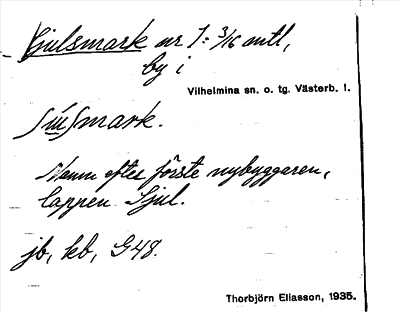 Sjulsmark nr 1: 3/16 mtl,
by i
Vilhelmina sn. o. tg. Västerb. l.
Namn efter förste nybyggaren,
lappen Sjul.
jb, kb, G48.
Thorbjörn Eliasson, 1935.